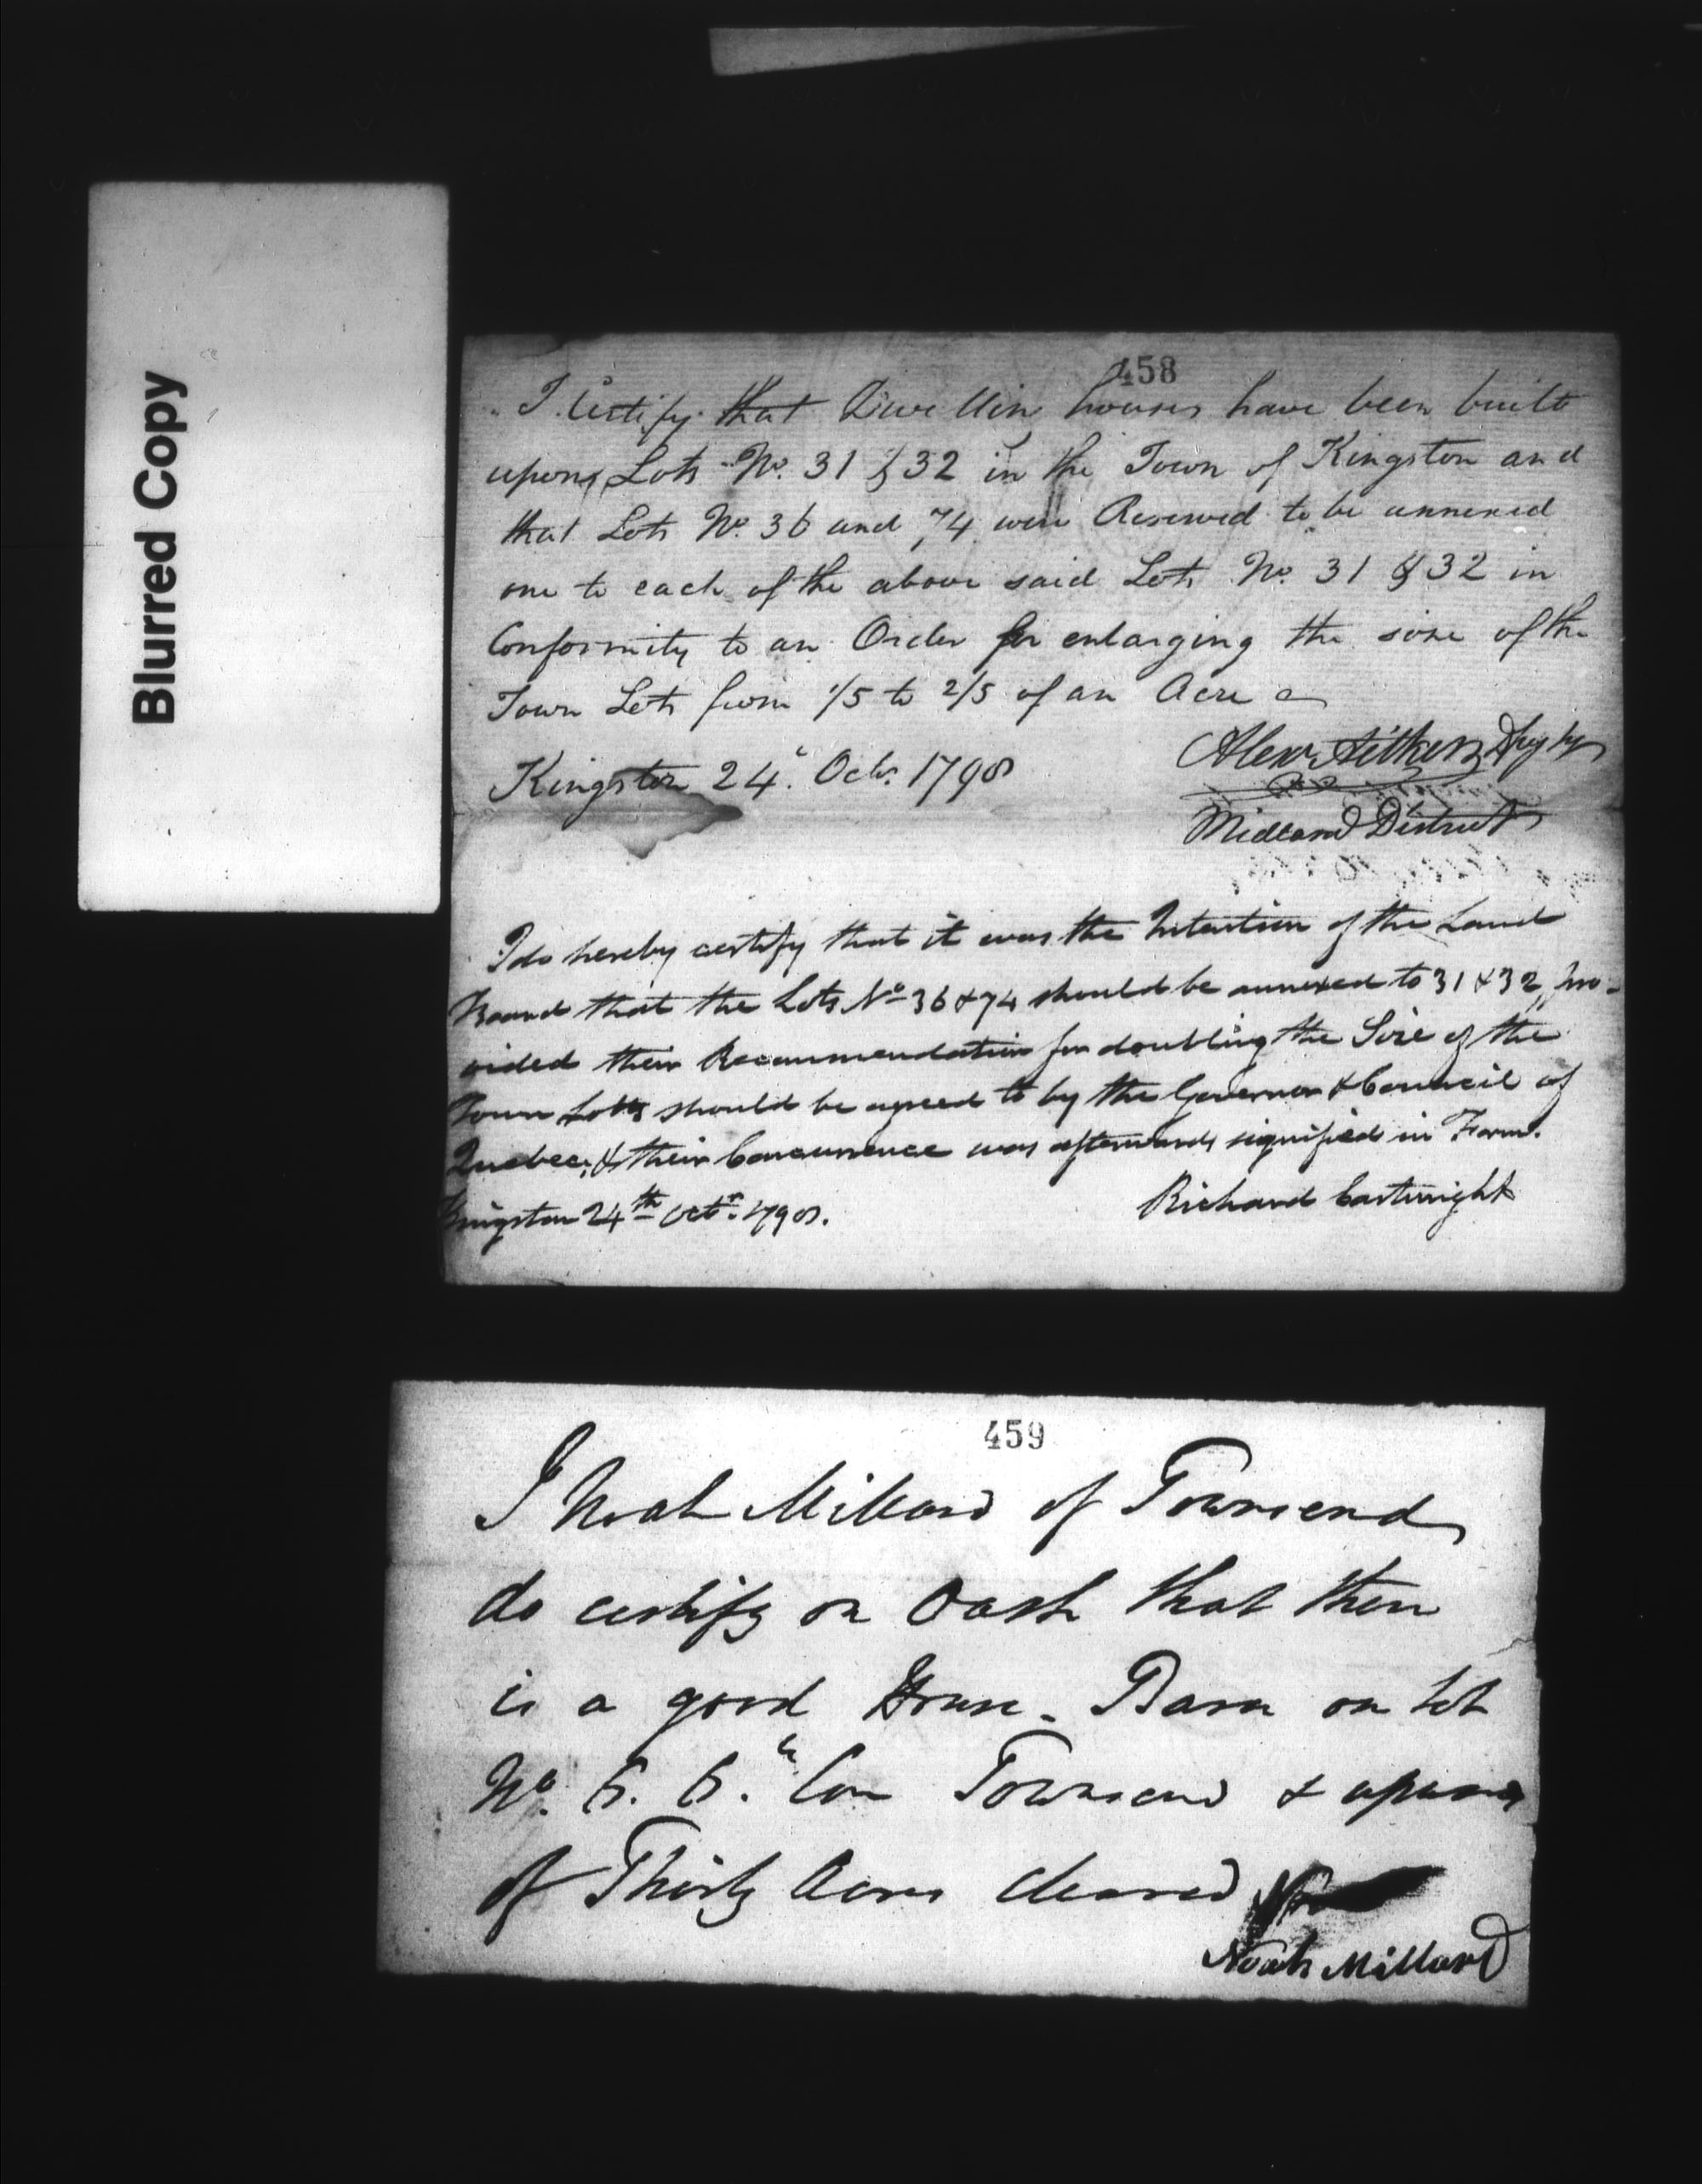 Blurred Copy
458
I Certify that Dwellin houses have been built
upon Lots No. 31 & 32 in the Town of Kingston and
that Lots No. 36 and 74 were Reserved to be annexed
one to each of the above said Lots No. 31 & 32 in
Conformity to an Order for enlarging the size of the
Town Lots from 1/5 to 2/5 of an Acre
Alexr Aitken
Kingston 24th Octr. 1798
Midland District
I do hereby certify that it was the Intention of the Land
Board that the Lots No 36 & 74 should be annexed to 31 & 32, pro-
vided their Recommendation for doubling the Size of the
Town Lots should be agreed to by the Governor & Council of
Quebec, & their Concurrence was afterwards signified in Form.
Kingston 24th Octr. 1798.
Richard Cartwright
459
I Noah Millard of Townsend
do certify on Oath that there
is a good House - Barn on Lot
No. 6. 6.th Con Townsend & upwards
of Thirty Acres cleared
Noah Millard